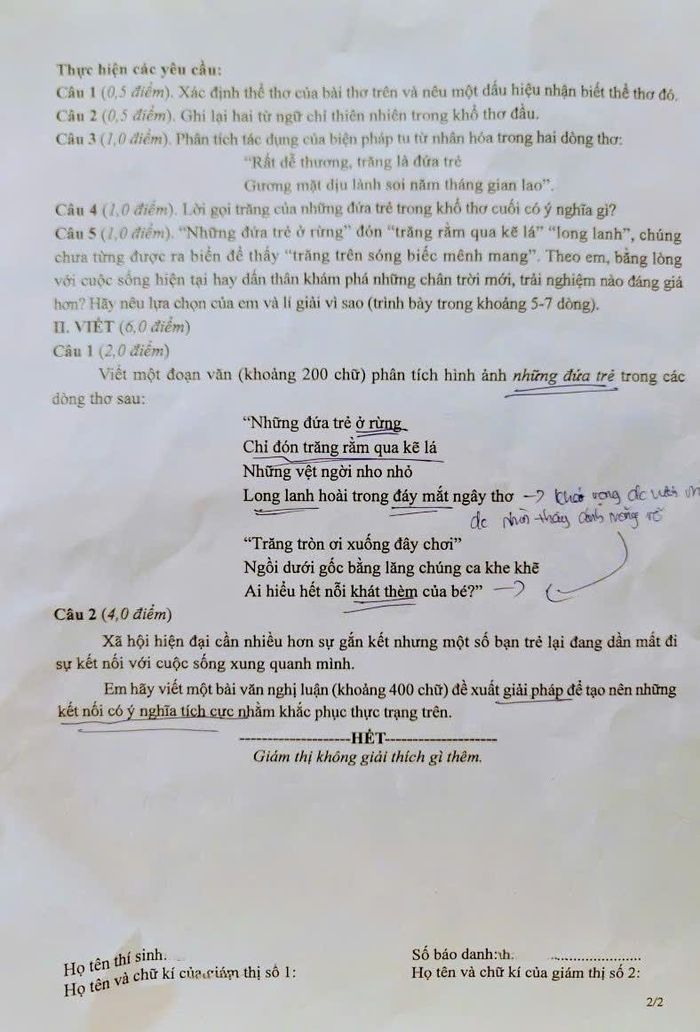 Thực hiện các yêu cầu:
Câu 1 (0,5 điểm). Xác định thể thơ của bài thơ trên và nêu một dấu hiệu nhận biết thể thơ đó.
Câu 2 (0,5 điểm). Ghi lại hai từ ngữ chỉ thiên nhiên trong khổ thơ đầu.
Câu 3 (1,0 điểm). Phân tích tác dụng của biện pháp tu từ nhân hóa trong hai dòng thơ:
“Rất dễ thương, trăng là đứa trẻ
Gương mặt dịu lành soi năm tháng gian lao”.
Câu 4 (1,0 điểm). Lời gọi trăng của những đứa trẻ trong khổ thơ cuối có ý nghĩa gì?
Câu 5 (1,0 điểm). “Những đứa trẻ ở rừng” đón “trăng rằm qua kẽ lá” “long lanh”, chúng
chưa từng được ra biển để thấy “trăng trên sóng biếc mênh mang”. Theo em, bằng lòng
với cuộc sống hiện tại hay dấn thân khám phá những chân trời mới, trải nghiệm nào đáng giá
hơn? Hãy nêu lựa chọn của em và lí giải vì sao (trình bày trong khoảng 5-7 dòng).
II. VIẾT (6,0 điểm)
Câu 1 (2,0 điểm)
Viết một đoạn văn (khoảng 200 chữ) phân tích hình ảnh những đứa trẻ trong các
dòng thơ sau:
“Những đứa trẻ ở rừng
Chỉ đón trăng rằm qua kẽ lá
Những vệt ngời nho nhỏ
Long lanh hoài trong đáy mắt ngây thơ → vọng đc
đc nhìn thấy
“Trăng tròn ơi xuống đây chơi”
Ngồi dưới gốc bằng lăng chúng ca khe khẽ
Ai hiểu hết nỗi khát thèm của bé?” →
Câu 2 (4,0 điểm)
Xã hội hiện đại cần nhiều hơn sự gắn kết nhưng một số bạn trẻ lại đang dần mất đi
sự kết nối với cuộc sống xung quanh mình.
Em hãy viết một bài văn nghị luận (khoảng 400 chữ) đề xuất giải pháp để tạo nên những
kết nối có ý nghĩa tích cực nhằm khắc phục thực trạng trên.
--------------------HẾT--------------------
Giám thị không giải thích gì thêm.
Họ tên thí sinh.
Số báo danh: ....................
Họ tên và chữ kí của giám thị số 1:
Họ tên và chữ kí của giám thị số 2:
2/2